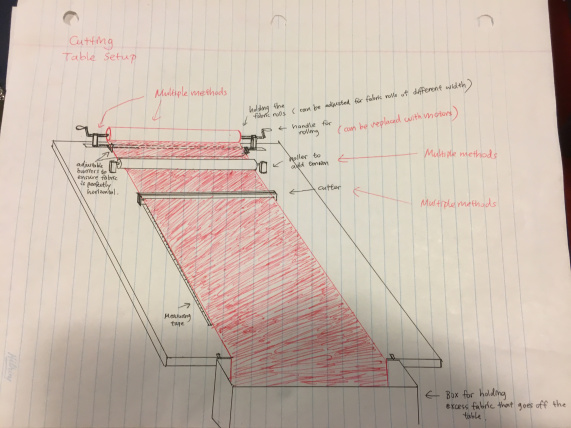 Cutting
Table Setup
Multiple methods
holding the
fabric rolls
(can be adjusted for fabric rolls of different width)
handle for
rolling
(can be replaced with motors)
adjustable
barriers to
ensure fabric
is perfectly
horizontal.
roller to
add tension
Multiple methods
cutter
Multiple methods
Measuring
tape
Box for holding
excess fabric that goes off the
table.